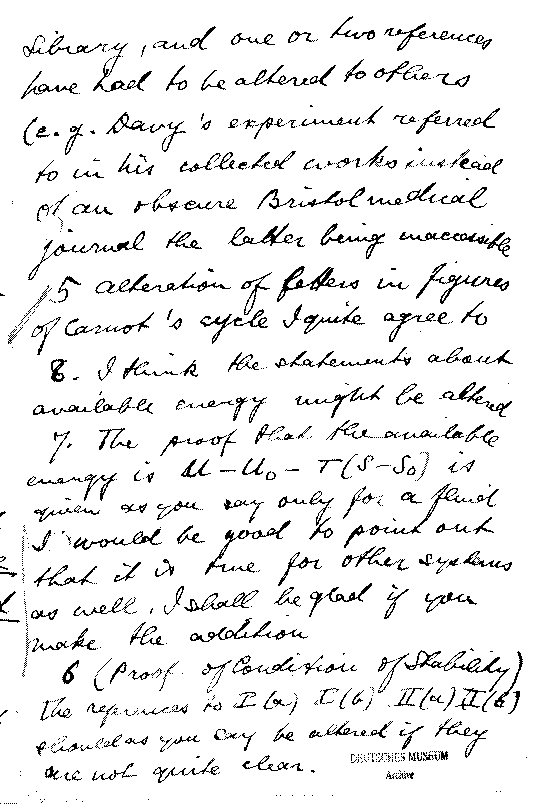 Library, and one or two references
have had to be altered to others
(e.g. Davy's experiment referred
to in his collected works instead
of an obscure Bristol medical
journal the latter being inaccessible
5 alteration of letters in figures
of Carnot's cycle I quite agree to
8. I think the statements about
available energy might be altered
7. The proof that the available
energy is U-U₀-T(S-S₀) is
given as you say only for a fluid
I would be good to point out
that it is true for other systems
as well. I shall be glad if you
make the addition
6 (Proof of Condition of Stability)
The refrences to I(a) I(b) II(a) II(b)
should as you say be altered if they
are not quite clear.
DEUTSCHES MUSEUM
Archive